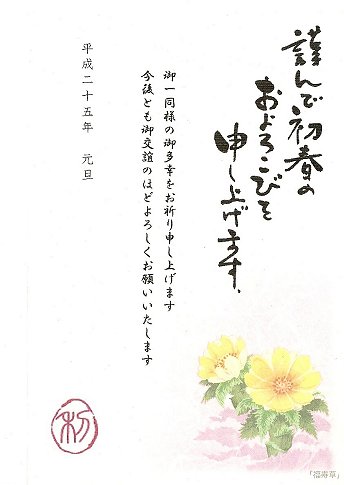 謹んで初春の
およろこびを
申し上げます。
御一同様の御多幸をお祈り申し上げます
今後とも御交誼のほどよろしくお願いいたします
平成二十五年　元旦
「福寿草」